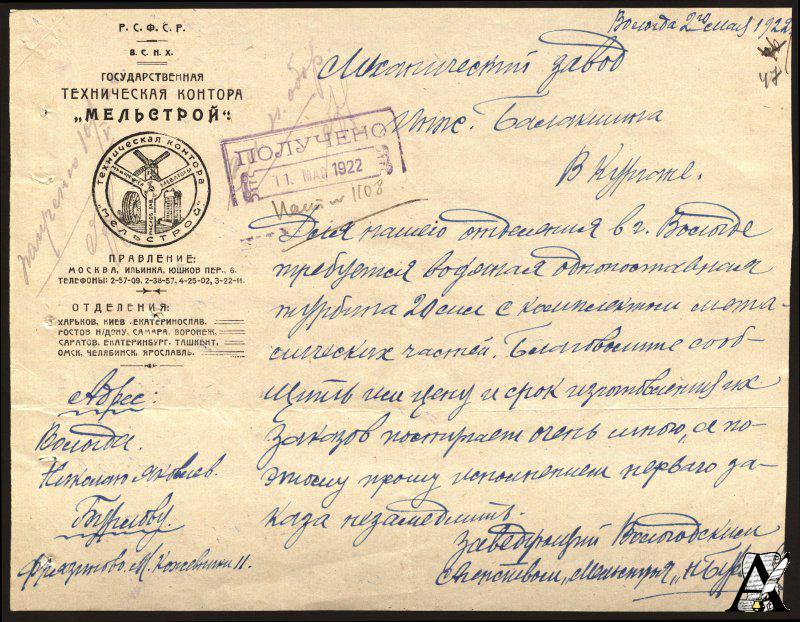 Р. С. Ф. С. Р.
В. С. Н. Х.
ГОСУДАРСТВЕННАЯ
ТЕХНИЧЕСКАЯ КОНТОРА
„МЕЛЬСТРОЙ“
ТЕХНИЧЕСКАЯ КОНТОРА
„МЕЛЬСТРОЙ“
ПРАВЛЕНИЕ:
МОСКВА, ИЛЬИНКА, ЮШКОВ ПЕР., 6.
ТЕЛЕФОНЫ: 2-57-09, 2-38-57, 4-25-02, 3-22-11.
ОТДЕЛЕНИЯ:
ХАРЬКОВ, КИЕВ, ЕКАТЕРИНОСЛАВ,
РОСТОВ Н/ДОНУ, САМАРА, ВОРОНЕЖ,
САРАТОВ, ЕКАТЕРИНБУРГ, ТАШКЕНТ,
ОМСК, ЧЕЛЯБИНСК, ЯРОСЛАВЛЬ.
Адрес:
Вологда.
Николаю Яковлев.
Бурлову.
Фрязиново, М. Кожевники 11.
Вологда 2го мая 1922
47
Механический завод
Инж. Балакшина
В Кургане.
ПОЛУЧЕНО
11. МАЙ 1922
1108
Для нашего отделения в г. Вологде
требуется водяная однопоставная
турбина 20 сил с комплектом мета-
лических частей. Благоволите сооб-
щить им цену и срок изготовления их
Заказов поступает очень много, а по-
этому прошу исполнением перваго за-
каза незамедлить.
Заведующий Вологодским
„Мельстроя“ Н. Бур
А